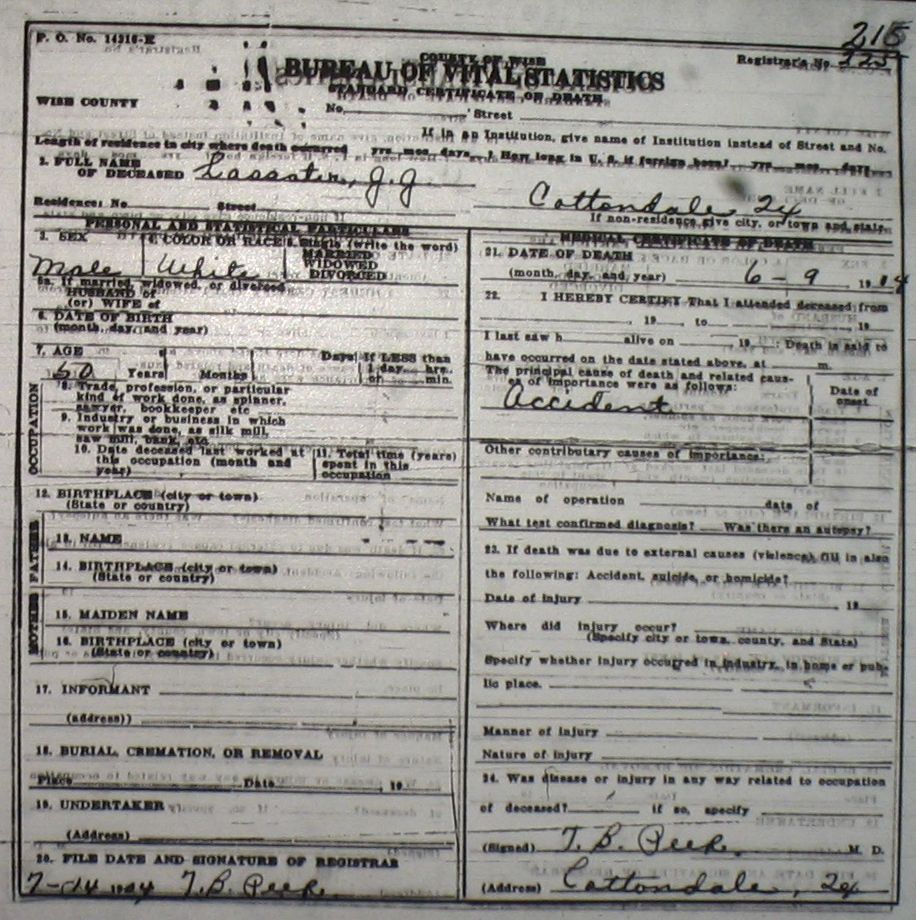 215
F. O. No. 14316-E
COUNTY OF WISE
Registrar's No. 225
BUREAU OF VITAL STATISTICS
STANDARD CERTIFICATE OF DEATH
WISE COUNTY No. Street
If in an Institution, give name of Institution instead of Street and No.
Length of residence in city where death occurred yrs. mos. days. How long in U. S. if foreign born? yrs. mos. days
2. FULL NAME
OF DECEASED J. J.
Residence: No. Street Cottondale
If non-residence give city, or town and state.
PERSONAL AND STATISTICAL PARTICULARS
3. SEX 4. COLOR OR RACE 5. Single (write the word)
MARRIED
WIDOWED
DIVORCED
Male White
5a. If married, widowed, or divorced
HUSBAND of
(or) WIFE of
6. DATE OF BIRTH
(month, day, and year)
7. AGE Days If LESS than
50 Years Months 1 day hrs.
or min.
OCCUPATION
8. Trade, profession, or particular
kind of work done, as spinner,
sawyer, bookkeeper etc
9. Industry or business in which
work was done, as silk mill,
saw mill, bank, etc.
10. Date deceased last worked at
this occupation (month and
year)
11. Total time (years)
spent in this
occupation
12. BIRTHPLACE (city or town)
(State or country)
FATHER
13. NAME
14. BIRTHPLACE (city or town)
(State or country)
MOTHER
15. MAIDEN NAME
16. BIRTHPLACE (city or town)
(State or country)
17. INFORMANT
(address))
18. BURIAL, CREMATION, OR REMOVAL
Place Date 19
19. UNDERTAKER
(Address)
20. FILE DATE AND SIGNATURE OF REGISTRAR
7-14 1904 T. B. Peek.
MEDICAL CERTIFICATE OF DEATH
21. DATE OF DEATH
(month, day, and year) 6 9 1904
22. I HEREBY CERTIFY That I attended deceased from
, 19 , to , 19
I last saw h alive on 19 : Death is said to
have occurred on the date stated above, at m.
The principal cause of death and related causes
of importance were as follows:
Date of
onset
Accident
Other contributary causes of importance:
Name of operation date of
What test confirmed diagnosis? Was there an autopsy?
23. If death was due to external causes (violence), fill in also
the following: Accident, suicide, or homicide?
Date of injury 19
Where did injury occur?
(Specify city or town, county, and State)
Specify whether injury occurred in industry, in home or pub-
lic place.
Manner of injury
Nature of injury
24. Was disease or injury in any way related to occupation
of deceased? if so, specify
(Signed) T. B. Peek. M. D.
(Address) Cottondale,